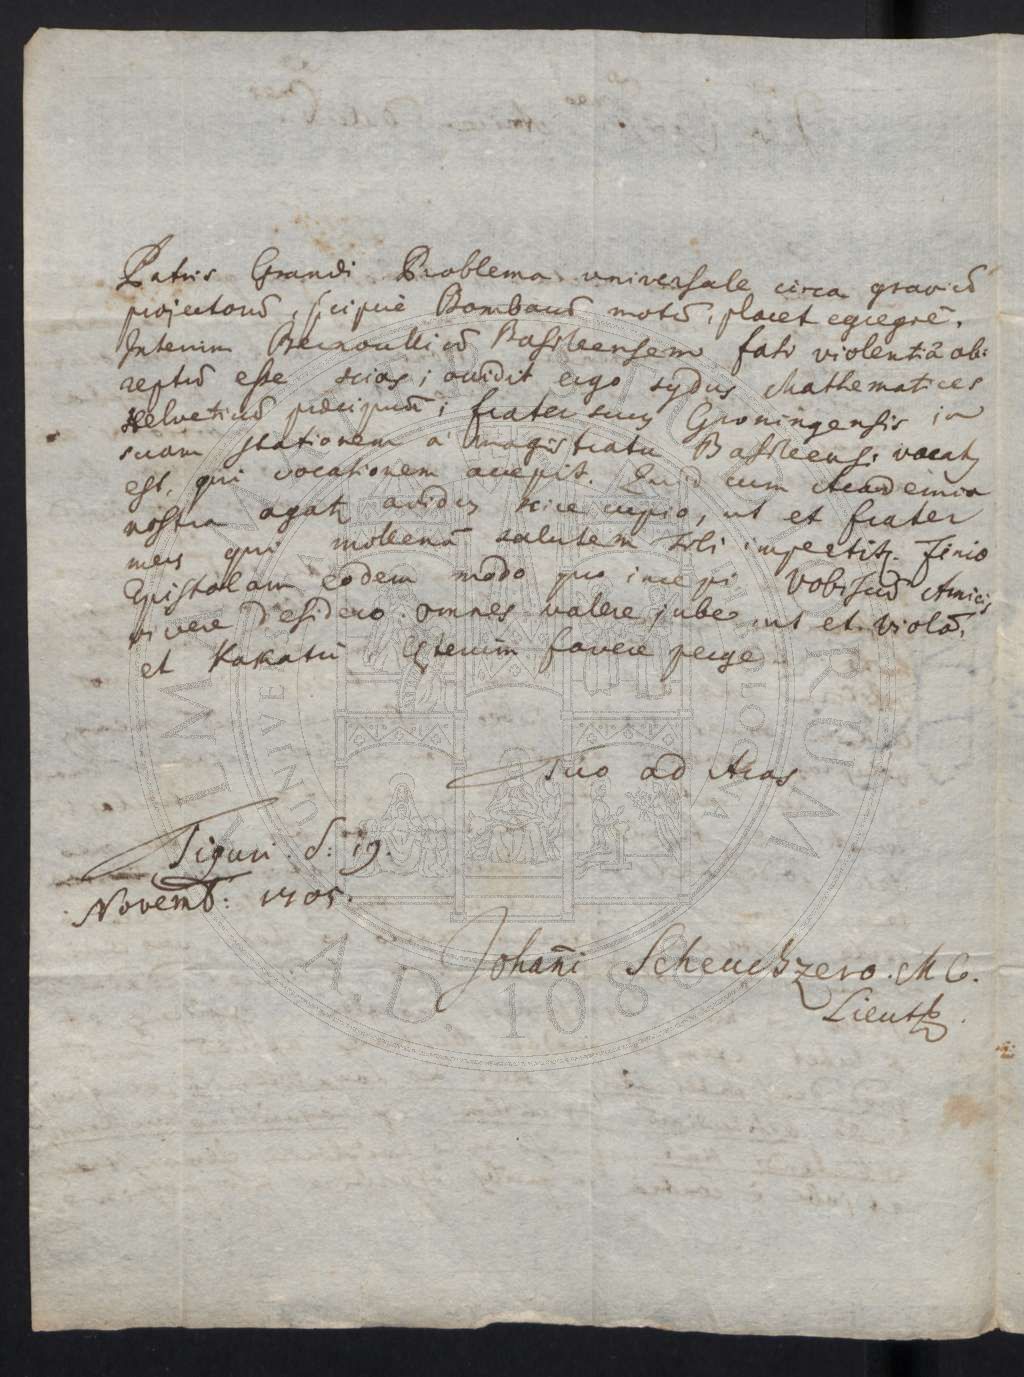 Patris Grandi Problema universale circa graviū
projectorū, p̄cipuè Bombarū motū, placet egregiè.
Interim Bernoulliū Basileensem fati violentiâ ab-
reptū esse scias; occidit ergo sydus Mathematices
Helveticū præcipuū; frater suus Groningensis in
suam stationem à magistratu Basileensi vocatus
est, qui vocationem accepit. Quid cum Academia
nostra agatur avidus scire cupio, ut et frater
meus qui salutem Tibi impertitur. Finio
Epistolam eodem modo quo incepi Vobiscū Amicis
vivere desidero. omnes valere jube, ut et Violā,
et Kakatū Cæterùm favere perge
Tuo ad Aras
Tiguri. d: 19.
Novemb: 1705.
Johañi Scheuchzero. M C.
Lieut
ALMA MATER STUDIORUM
A.D. 1088